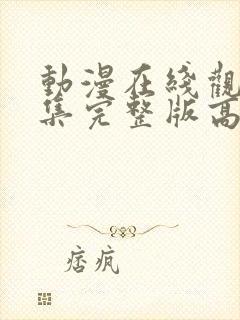 動漫在线觀
集完整版高
痞疯